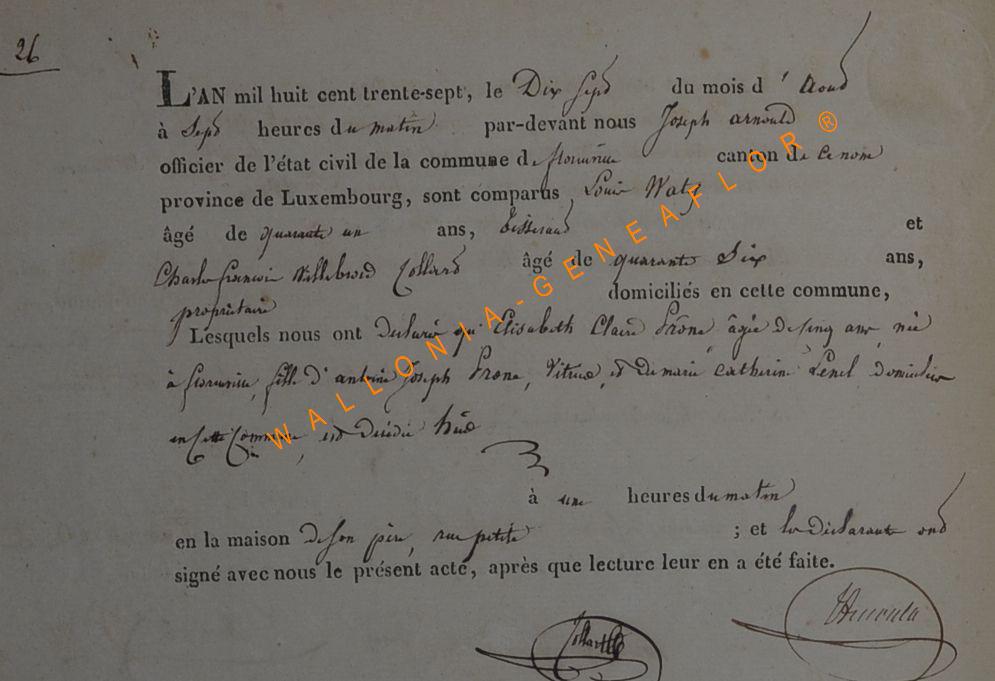 26
L'AN mil huit cent trente-sept, le Dix Sept du mois d' Aout
à Sept heures du matin par-devant nous Joseph arnould
officier de l'état civil de la commune de florenville canton de ce nom
province de Luxembourg, sont comparus Louis Waty
âgé de quarante un ans, tisserand et
Charles francois Willebrord Collard âgé de quarante Six ans,
propriétaire domiciliés en cette commune,
Lesquels nous ont declaré qu' Elisabeth Claire Prone âgée de cinq ans née
à florenville, fille d' antoine Joseph Prone, Vitrier, et de marie catherine domiciliés
en Cette Commune, est décédée hier
à une heures du matin
en la maison de son père, rue petite ; et les déclarants ont
signé avec nous le présent acte, après que lecture leur en a été faite.
WALLONIA-GENEAFLOR ®